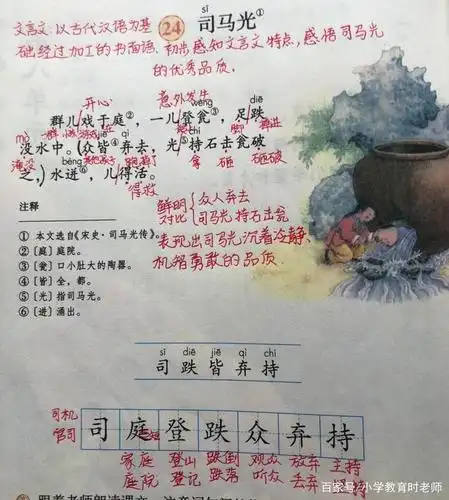 sī
24 司马光①
文言文:以古代汉语为基
础经过加工的书面语。初步感知文言文特点,感悟司马光
的优秀品质。
开心 意外发生
wèng diē
群儿戏于庭②,一儿登瓮③,足跌
一群 小孩 游戏 在 脚 掉进
mò jiē qì chí
没水中。(众皆④弃去,光⑤持石击瓮破
淹没 跑掉了 拿 砸 砸破
bèng
之,)水迸⑥,儿得活。
得救
鲜明对比 众人弃去
司马光持石击瓮
表现出司马光沉着冷静、
机智勇敢的品质。
注释
① 本文选自《宋史·司马光传》。
②〔庭〕庭院。
③〔瓮〕口小肚大的陶器。
④〔皆〕全,都。
⑤〔光〕指司马光。
⑥〔迸〕涌出。
sī diē jiē qì chí
司 跌 皆 弃 持
司机
官司
司 庭 登 跌 众 弃 持
家庭 登山 跌倒 观众 放弃 主持
庭院 登记 跌落 听众 丢弃
百家号/小学教育时老师